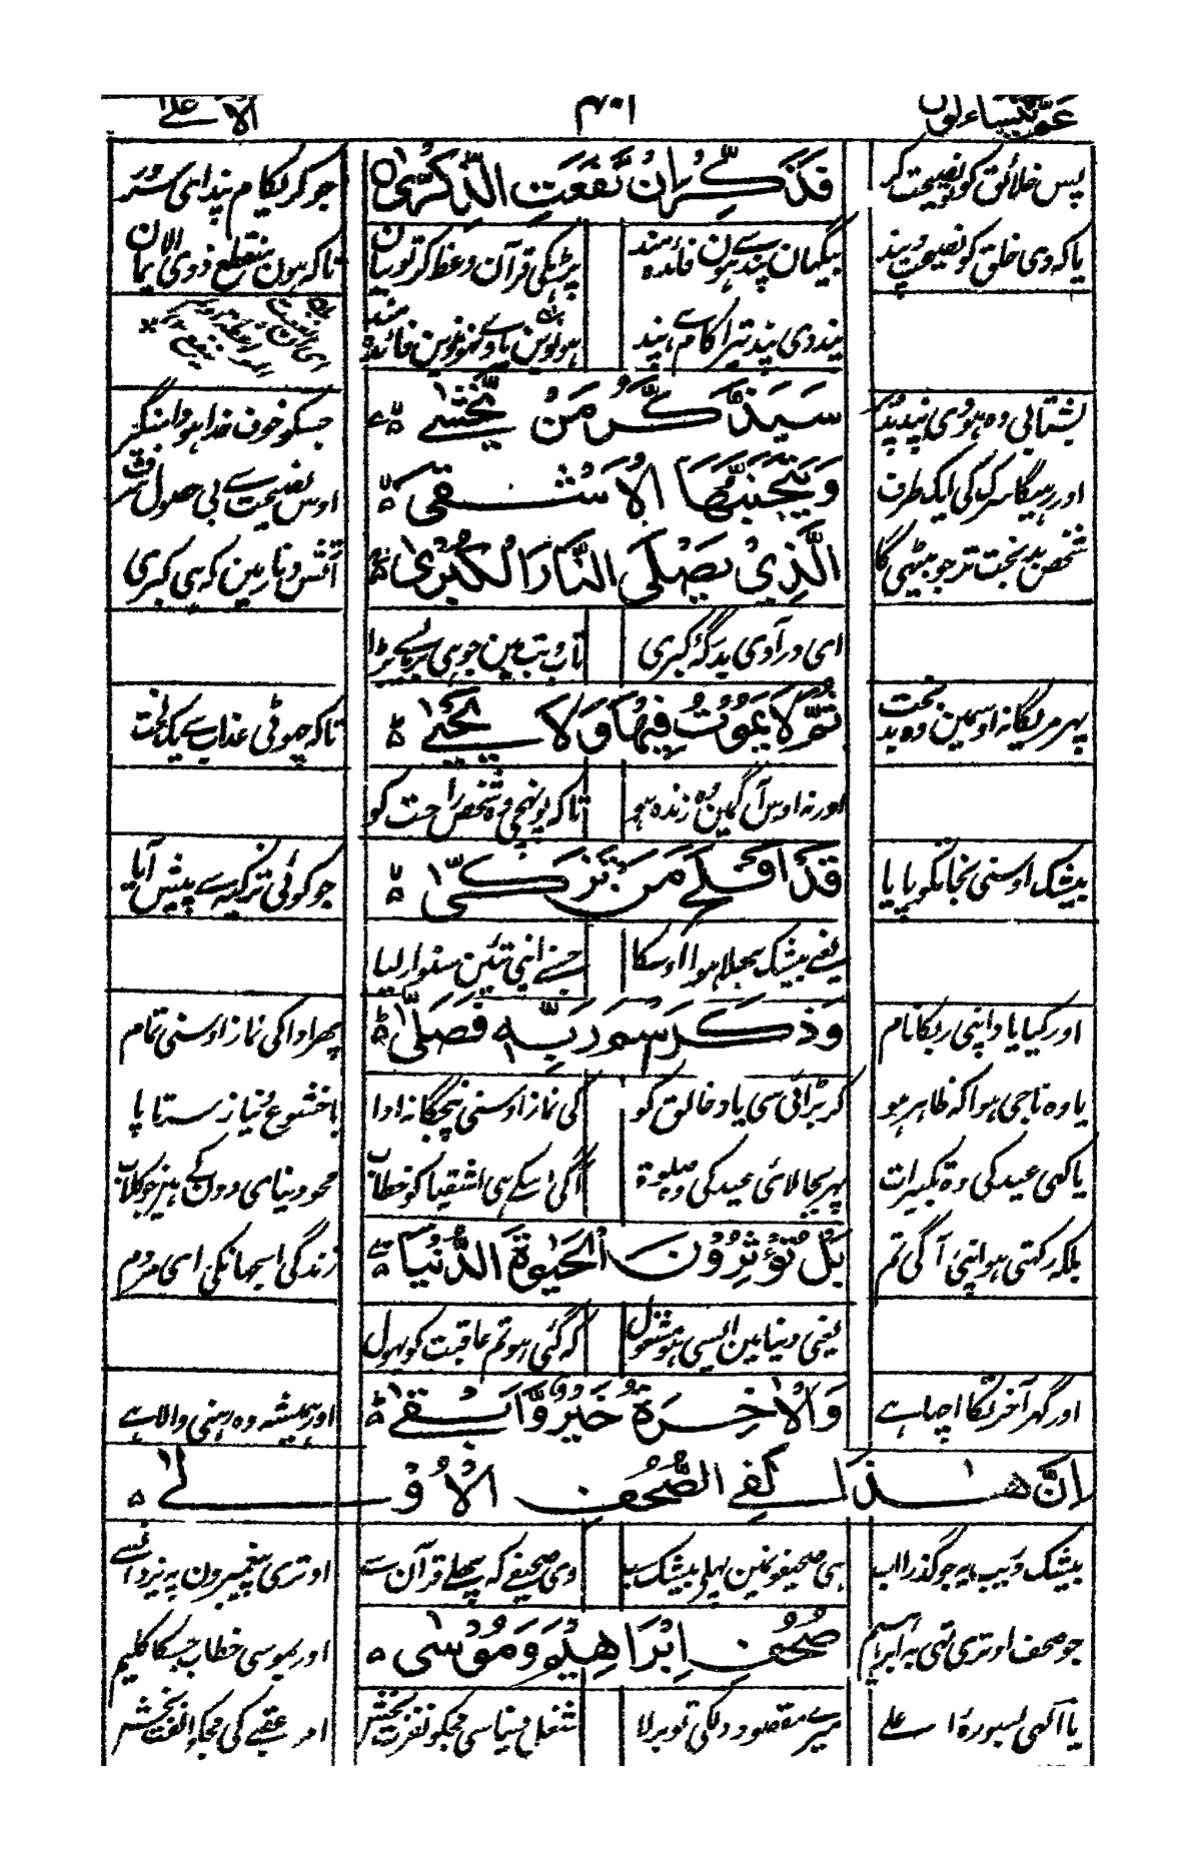 عم یتساءلون ۴۰۱ الاعلے
پس خلائق کو نصیحت کر فَذَكِّرْ اِنْ نَّفَعَتِ الذِّكْرٰى جو کریگا م پند ای
یا کہ دی خلق کو نصیحت پند بیگمان پند سے ہون فائدہ مند پڑہکی قرآن وعظ کر تو بیان تاکہ ہون منقطع ذوی الایمان
پند دی پند تیرا کام ہے پند
بشتابی وہ ہووی پند پذیر سَيَذَّكَّرُ مَنْ يَّخْشٰے جسکو خوف خدا ہو دامنگیر
اور رہیگا سرک کی ایک طرف وَيَتَجَنَّبُهَا الْاَشْقَى اوس نصیحت سے بی حصول شرف
شخص بد بخت تر جو بیٹھی گا الَّذِيْ يَصْلَى النَّارَ الْكُبْرٰى آتش و نار مین کہ ہی کبری
ای در آوی بدرگۂ کبری تاب و تب مین جو ہی
پہر مریگا نہ اوسمین وہ بد بخت ثُمَّ لَا يَمُوْتُ فِيْهَا وَلَا يَحْيٰے تاکہ چوٹی عذاب سے یک لخت
اور نہ اوس آگ مین وہ زندہ ہو تاکہ پونہچی وہ شخص راحت کو
بیشک اوسنی نجاتکو پایا قَدْ اَفْلَحَ مَنْ تَزَكّٰى جو کوئی تزکیہ سے پیش آیا
یعنے بیشک بھلا ہوا اوسکا جسنے اپنی تئین سنوار لیا
اور کیا یاد اپنی رب کا نام وَذَكَرَ اسْمَ رَبِّهٖ فَصَلّٰى پھر ادا کی نماز اوسنی تمام
یا وہ ناجی ہوا کہ ظاہر ہو کر بڑائی سی یاد خالق کو کی نماز اوسنی پنجگانہ ادا باخشوع و نیاز سرتا پا
یا کہی عید کی وہ تکبیرات پہر بجا لائی عید کی وہ صلوۃ آگی اسکے ہی اشقیا کو خطاب
بلکہ رکھتی ہو اپنی آگی تم بَلْ تُؤْثِرُوْنَ الْحَيٰوةَ الدُّنْيَا زندگی اسجہانکی ای مردم
یعنی دنیا مین ایسی ہو مشغول کہ گئی ہو تم عاقبت کو بہول
اور گہر آخرتکا اچہا ہے وَالْاٰخِرَةُ خَيْرٌ وَّاَبْقٰے اور ہمیشہ وہ رہنی والا ہے
اِنَّ هٰذَا لَفِے الصُّحُفِ الْاُوْلٰے
بیشک و ریب یہ جو گذرا سب ہی صحیفونمین پہلی بیشک سب وی صحیفے کہ پہلے قرآن سے اوتری پیغمبرون پہ یزدان سے
جو صحف اوتری تہی بہ ابراہیم صُحُفِ اِبْرَاهِيْمَ وَمُوْسٰى اور بموسی خطاب جسکا کلیم
یا آلہی بسورۂ اعلے میرے مقصود دلکی تو بر لا شغل دنیا سی مجکو نفرت بخش اور عقبے کی مجکو الفت بخش